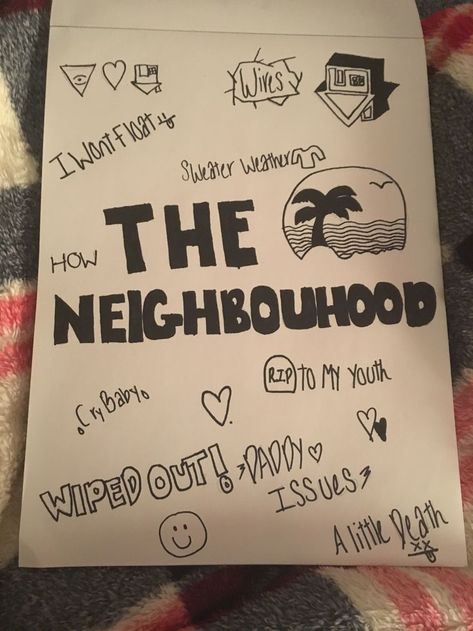 Wires
I Wont Float
Sweater Weather
HOW
THE
NEIGHBOUHOOD
R.I.P TO MY Youth
Cry Baby
WIPED OUT!
DADDY
ISSUES
A little Death